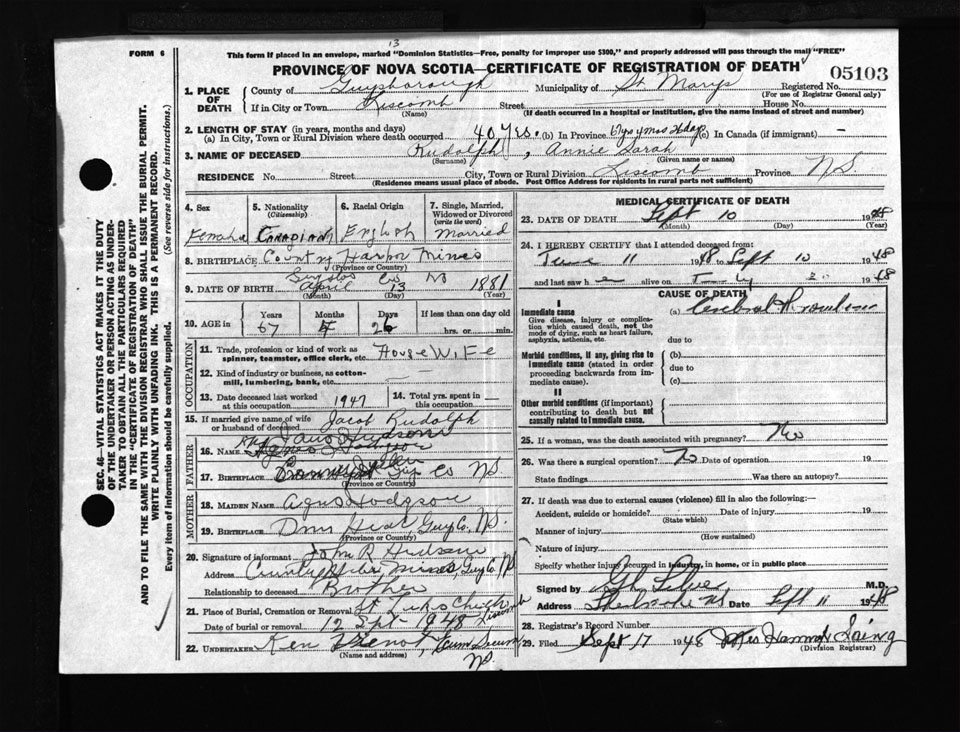 FORM 6
13
This form if placed in an envelope, marked "Dominion Statistics—Free, penalty for improper use $300," and properly addressed will pass through the mail "FREE"
PROVINCE OF NOVA SCOTIA—CERTIFICATE OF REGISTRATION OF DEATH
05103
SEC. 46—VITAL STATISTICS ACT MAKES IT THE DUTY
OF THE UNDERTAKER OR PERSON ACTING AS UNDER-
TAKER TO OBTAIN ALL THE PARTICULARS REQUIRED
IN THE "CERTIFICATE OF REGISTRATION OF DEATH"
AND TO FILE THE SAME WITH THE DIVISION REGISTRAR WHO SHALL ISSUE THE BURIAL PERMIT.
WRITE PLAINLY WITH UNFADING INK. THIS IS A PERMANENT RECORD.
Every item of information should be carefully supplied. (See reverse side for instructions.)
1. PLACE OF DEATH
County of Guysborough Municipality of St Marys Registered No.
(For use of Registrar General only)
If in City or Town Liscomb Street House No.
(Name) (If death occurred in a hospital or institution, give its name instead of street and number)
2. LENGTH OF STAY (in years, months and days)
(a) In City, Town or Rural Division where death occurred 40 Yrs. (b) In Province 67yrs 4mos 26days (c) In Canada (if immigrant) —
3. NAME OF DECEASED Rudolph, Annie Sarah
(Surname) (Given name or names)
RESIDENCE No. Street City, Town or Rural Division Liscomb Province N.S.
(Residence means usual place of abode. Post Office Address for residents in rural parts not sufficient)
4. Sex Female
5. Nationality (Citizenship) Canadian
6. Racial Origin English
7. Single, Married, Widowed or Divorced (write the word) Married
8. BIRTHPLACE Country Harbor Mines
(Province or Country)
Guysbo Co NS
9. DATE OF BIRTH April 13 1881
(Month) (Day) (Year)
10. AGE in Years Months Days If less than one day old
67 4 26 hrs. or min.
OCCUPATION
11. Trade, profession or kind of work as spinner, teamster, office clerk, etc. House Wife
12. Kind of industry or business, as cotton-mill, lumbering, bank, etc.
13. Date deceased last worked at this occupation 1947
14. Total yrs. spent in this occupation
15. If married give name of wife or husband of deceased Jacob Rudolph
FATHER
16. Name Hudson
17. BIRTHPLACE Guy Co N.S.
(Province or Country)
MOTHER
18. MAIDEN NAME Hodgson
19. BIRTHPLACE Guy Co. N.S.
(Province or Country)
20. Signature of informant John R Hudson
Address Country Harbor Mines, Guy Co. NS
Relationship to deceased Brother
21. Place of Burial, Cremation or Removal St Lukes Church Liscomb
Date of burial or removal 12 Sept 1948
22. UNDERTAKER Ken, Ecum Secum
(Name and address)
N.S.
MEDICAL CERTIFICATE OF DEATH
23. DATE OF DEATH Sept 10 1948
(Month) (Day) (Year)
24. I HEREBY CERTIFY that I attended deceased from:
June 11 1948 to Sept 10 1948
and last saw h e alive on 1948
CAUSE OF DEATH
I
Immediate cause
Give disease, injury or complication which caused death, not the mode of dying, such as heart failure, asphyxia, asthenia, etc.
(a) Cerebral
due to
Morbid conditions, if any, giving rise to immediate cause (stated in order proceeding backwards from immediate cause).
(b)
due to
(c)
II
Other morbid conditions (if important) contributing to death but not causally related to immediate cause.
25. If a woman, was the death associated with pregnancy? No
26. Was there a surgical operation? No Date of operation 19
State findings Was there an autopsy?
27. If death was due to external causes (violence) fill in also the following:—
Accident, suicide or homicide? Date of injury 19
(State which)
Manner of injury
(How sustained)
Nature of injury
Specify whether injury occurred in industry, in home, or in public place
Signed by M.D.
Address Sherbrooke NS Date Sept 11 1948
28. Registrar's Record Number
29. Filed Sept 17 1948 Mrs Hannah Laing
(Division Registrar)